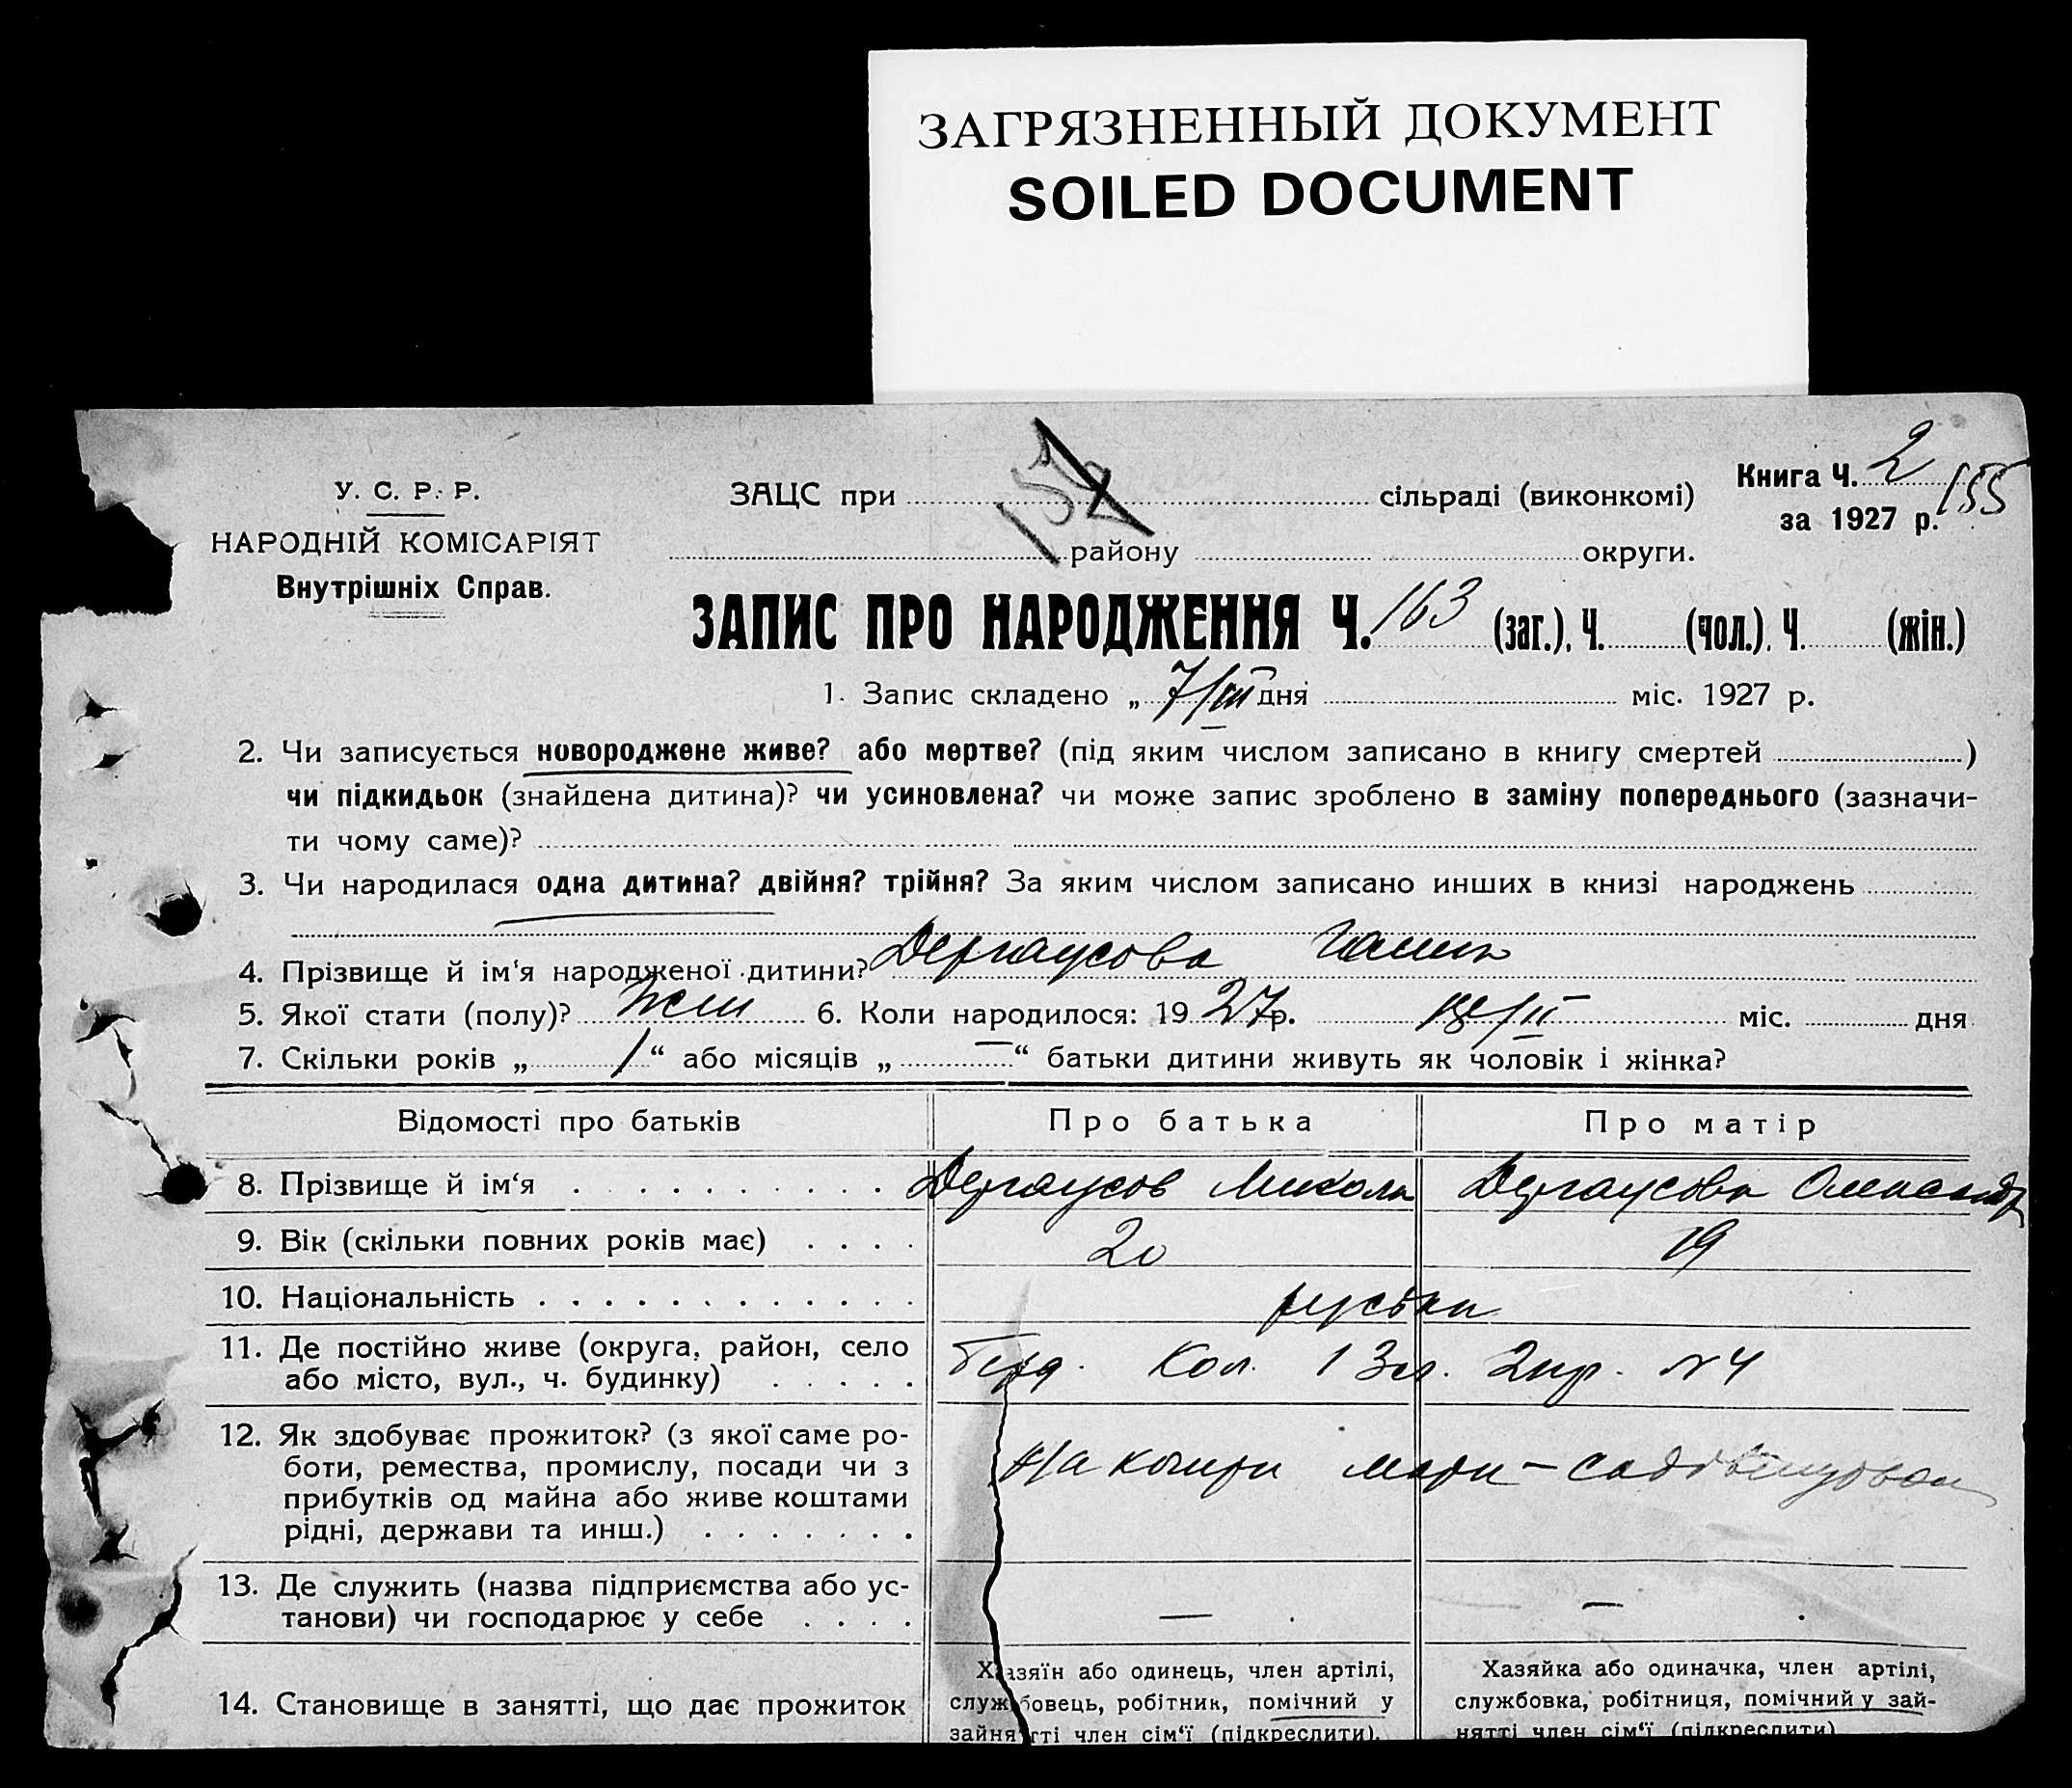 ЗАГРЯЗНЕННЫЙ ДОКУМЕНТ
SOILED DOCUMENT
У. С. Р. Р.
НАРОДНІЙ КОМІСАРІЯТ
Внутрішніх Справ.
ЗАЦС при сільраді (виконкомі)
району округи.
Книга Ч. 2
155
за 1927 р.
ЗАПИС ПРО НАРОДЖЕННЯ Ч. 163 (заг.), Ч. (чол.), Ч. (жін.)
1. Запис складено „ 7/III дня міс. 1927 р.
2. Чи записується новороджене живе? або мертве? (під яким числом записано в книгу смертей )
чи підкидьок (знайдена дитина)? чи усиновлена? чи може запис зроблено в заміну попереднього (зазначи-
ти чому саме)?
3. Чи народилася одна дитина? двійня? трійня? За яким числом записано инших в книзі народжень
4. Прізвище й ім‘я народженої дитини? Дергаусова
5. Якої стати (полу)? жін 6. Коли народилося: 1927 р. /II міс. дня
7. Скільки років „ 1 “ або місяців „ — “ батьки дитини живуть як чоловік і жінка?
Відомості про батьків Про батька Про матір
8. Прізвище й ім‘я Дергаусов Микола Дергаусова Олександр
9. Вік (скільки повних років має) 20 19
10. Національність руські
11. Де постійно живе (округа, район, село Кол. 1 Зл. 2 пр. №4
або місто, вул., ч. будинку)
12. Як здобуває прожиток? (з якої саме ро-
боти, ремества, промислу, посади чи з На кошти
прибутків од майна або живе коштами
рідні, держави та инш.)
13. Де служить (назва підприємства або ус-
танови) чи господарює у себе — —
14. Становище в занятті, що дає прожиток
Хазяїн або одинець, член артілі,
службовець, робітник, помічний у
зайнятті член сім‘ї (підкреслити).
Хазяйка або одиначка, член артілі,
службовка, робітниця, помічний у зай-
нятті член сім‘ї (підкреслити)